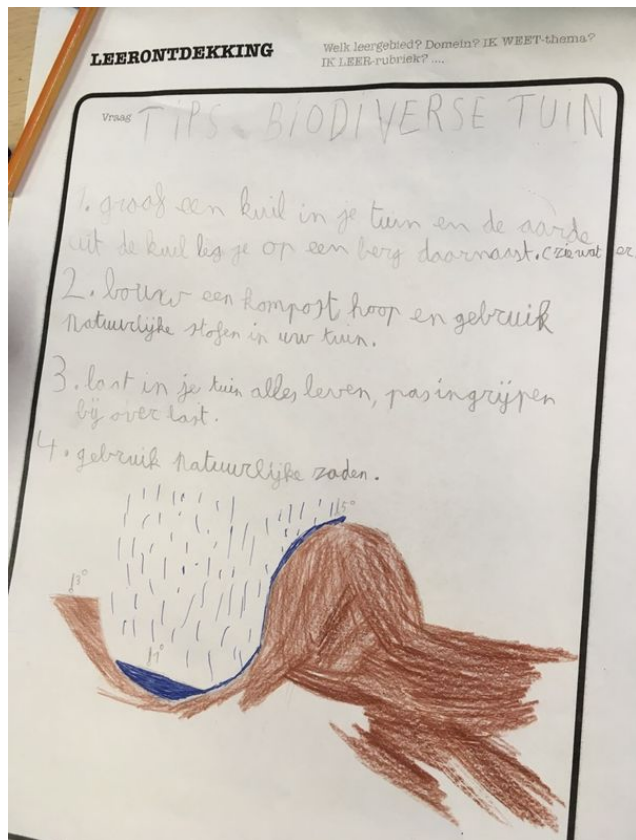 LEERONTDEKKING
Welk leergebied? Domein? IK WEET-thema?
IK LEER-rubriek? ....
Vraag TIPS BIODIVERSE TUIN
1. graaf een kuil in je tuin en de aarde
uit de kuil leg je op een berg daarnaast. (zie wat er
2. bouw een kompost hoop en gebruik
natuurlijke stofen in uw tuin.
3. last in je tuin alles leven, pas ingrijpen
bij over last.
4. gebruik natuurlijke zaden.
15°
13°
11°